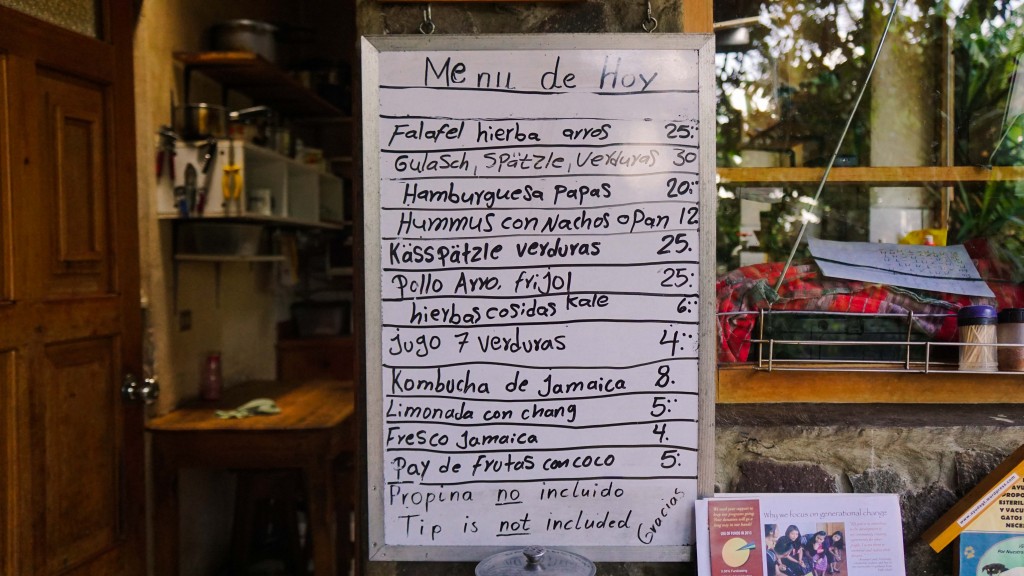 Menu de Hoy
Falafel hierba arros 25:
Gulasch, Spätzle, Verduras 30
Hamburguesa papas 20:
Hummus con Nachos o Pan 12
Kässpätzle verduras 25.
Pollo Arro. frijol 25:
hierbas cosidas kale 6:
Jugo 7 verduras 4:
Kombucha de Jamaica 8.
Limonada con chang 5:
Fresco Jamaica 4.
Pay de frutas con coco 5:
Propina no incluido
Tip is not included
Gracias
Why we focus on generational change
ESTERIL
Y VACU
GATOS
NECE